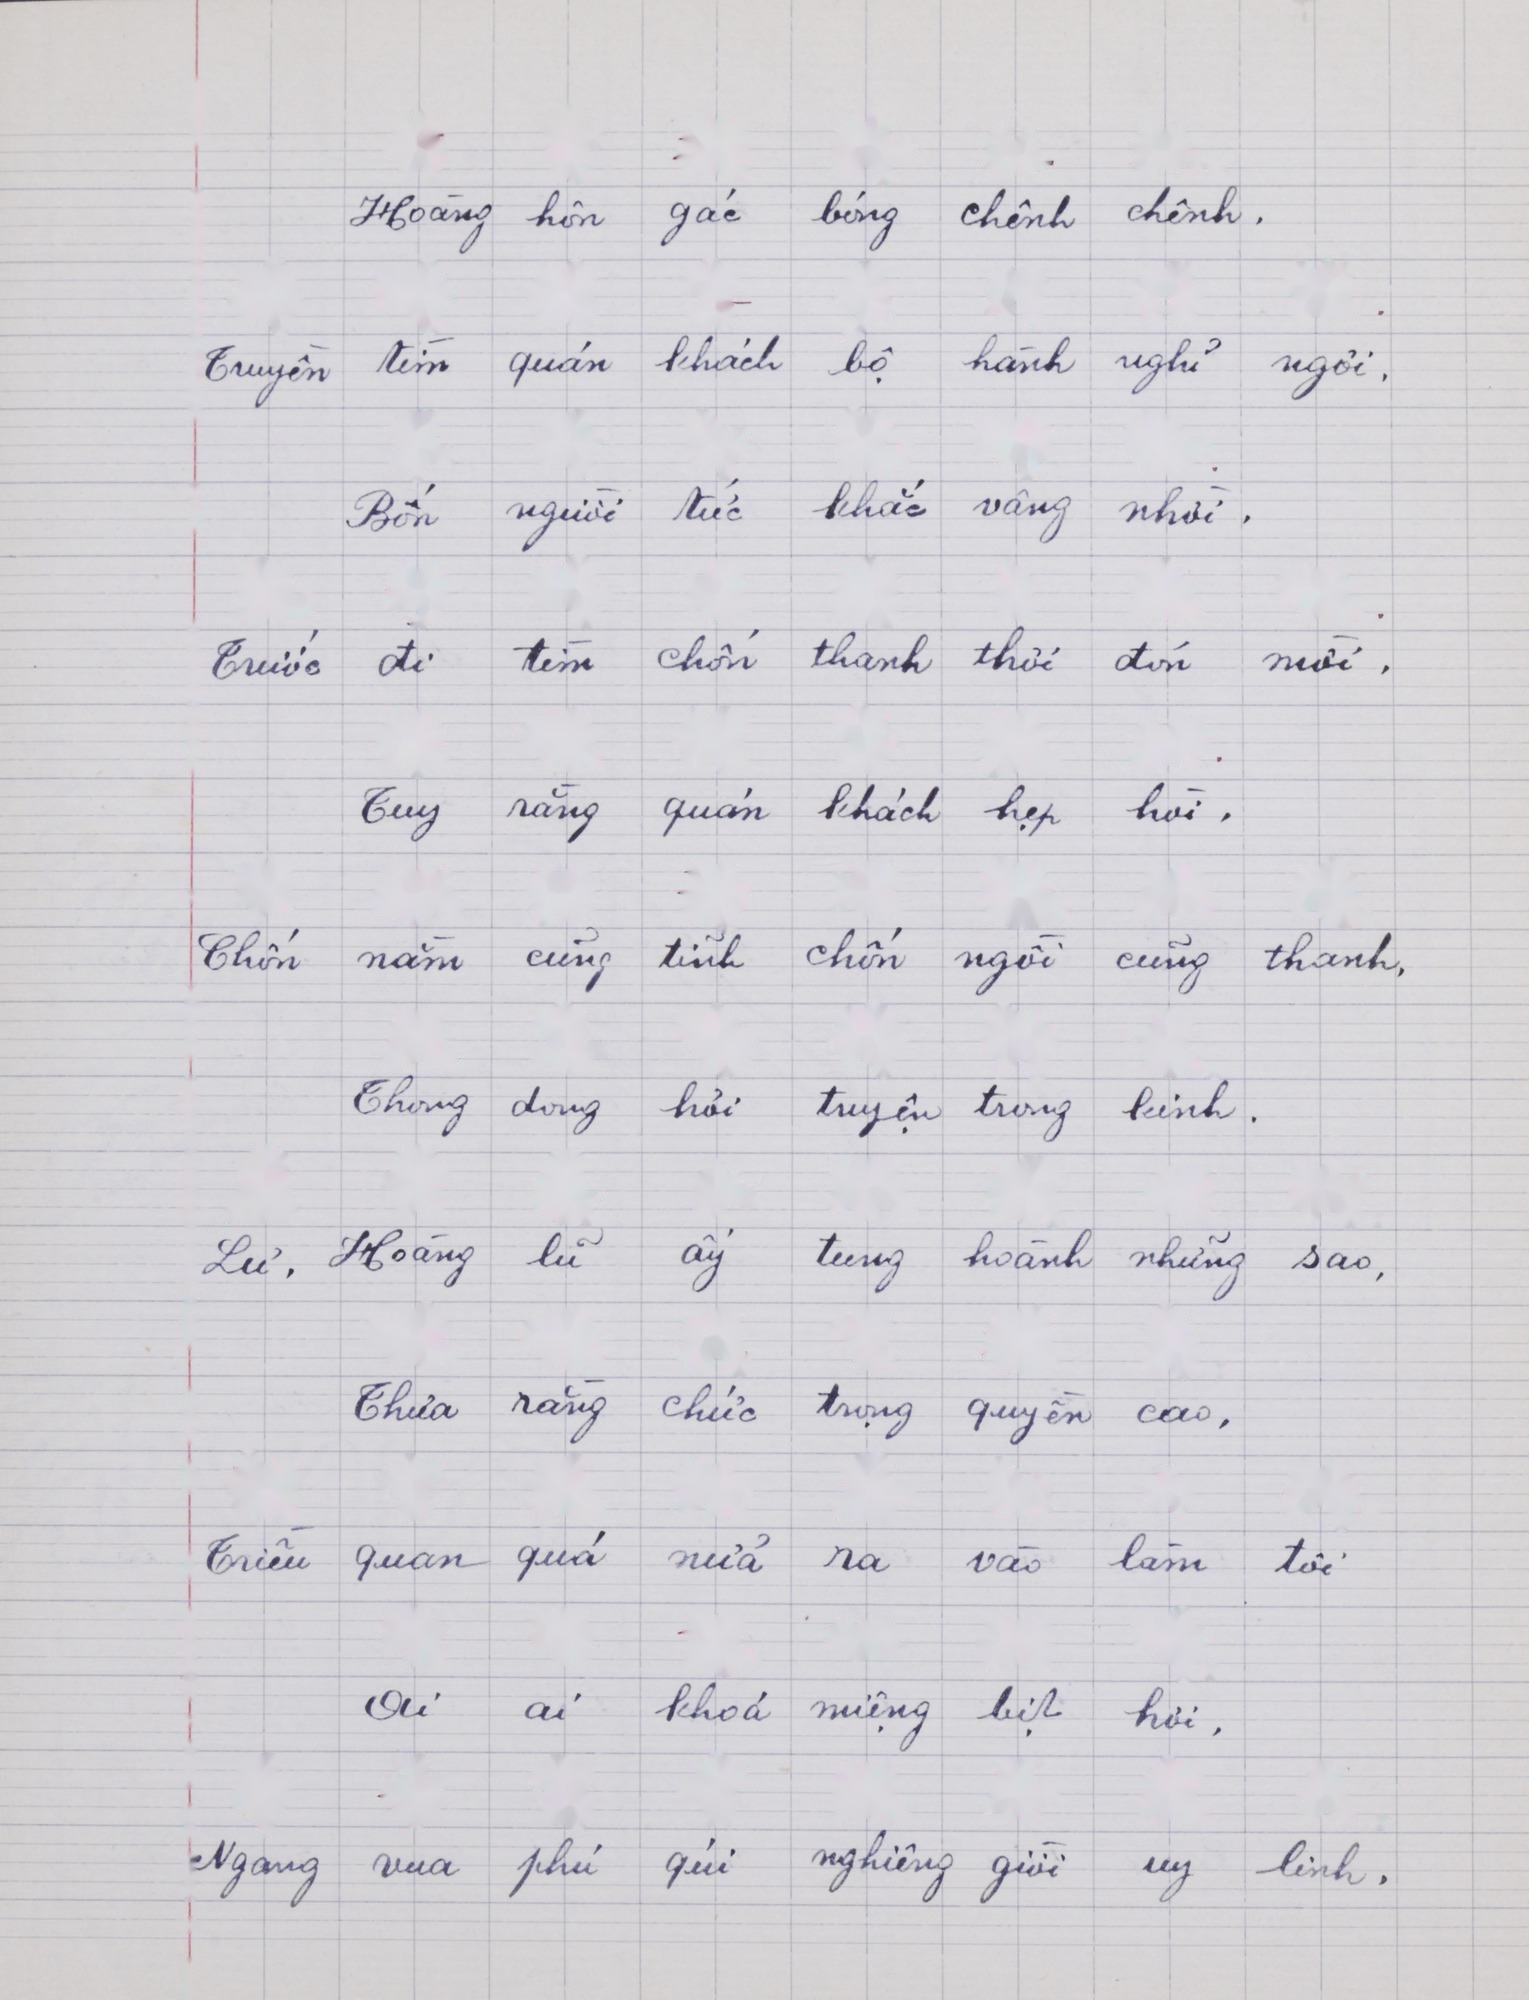 Hoàng hôn gác bóng chênh chênh.
Truyền tìm quán khách bộ hành nghỉ ngơi.
Bốn người tức khắc vâng nhời.
Trước đi tìm chốn thanh thơi đón mời.
Tuy rằng quán khách hẹp hòi.
Chốn nằm cũng tĩnh chốn ngồi cũng thanh.
Thong dong hỏi truyện trong kinh.
Lư, Hoàng lũ ấy tung hoành nhường sao,
Thưa rằng chức trọng quyền cao,
Triều quan quá nửa ra vào làm tôi
Ai ai khoá miệng bịt hơi,
Ngang vua phú qúi nghiêng giời uy linh.